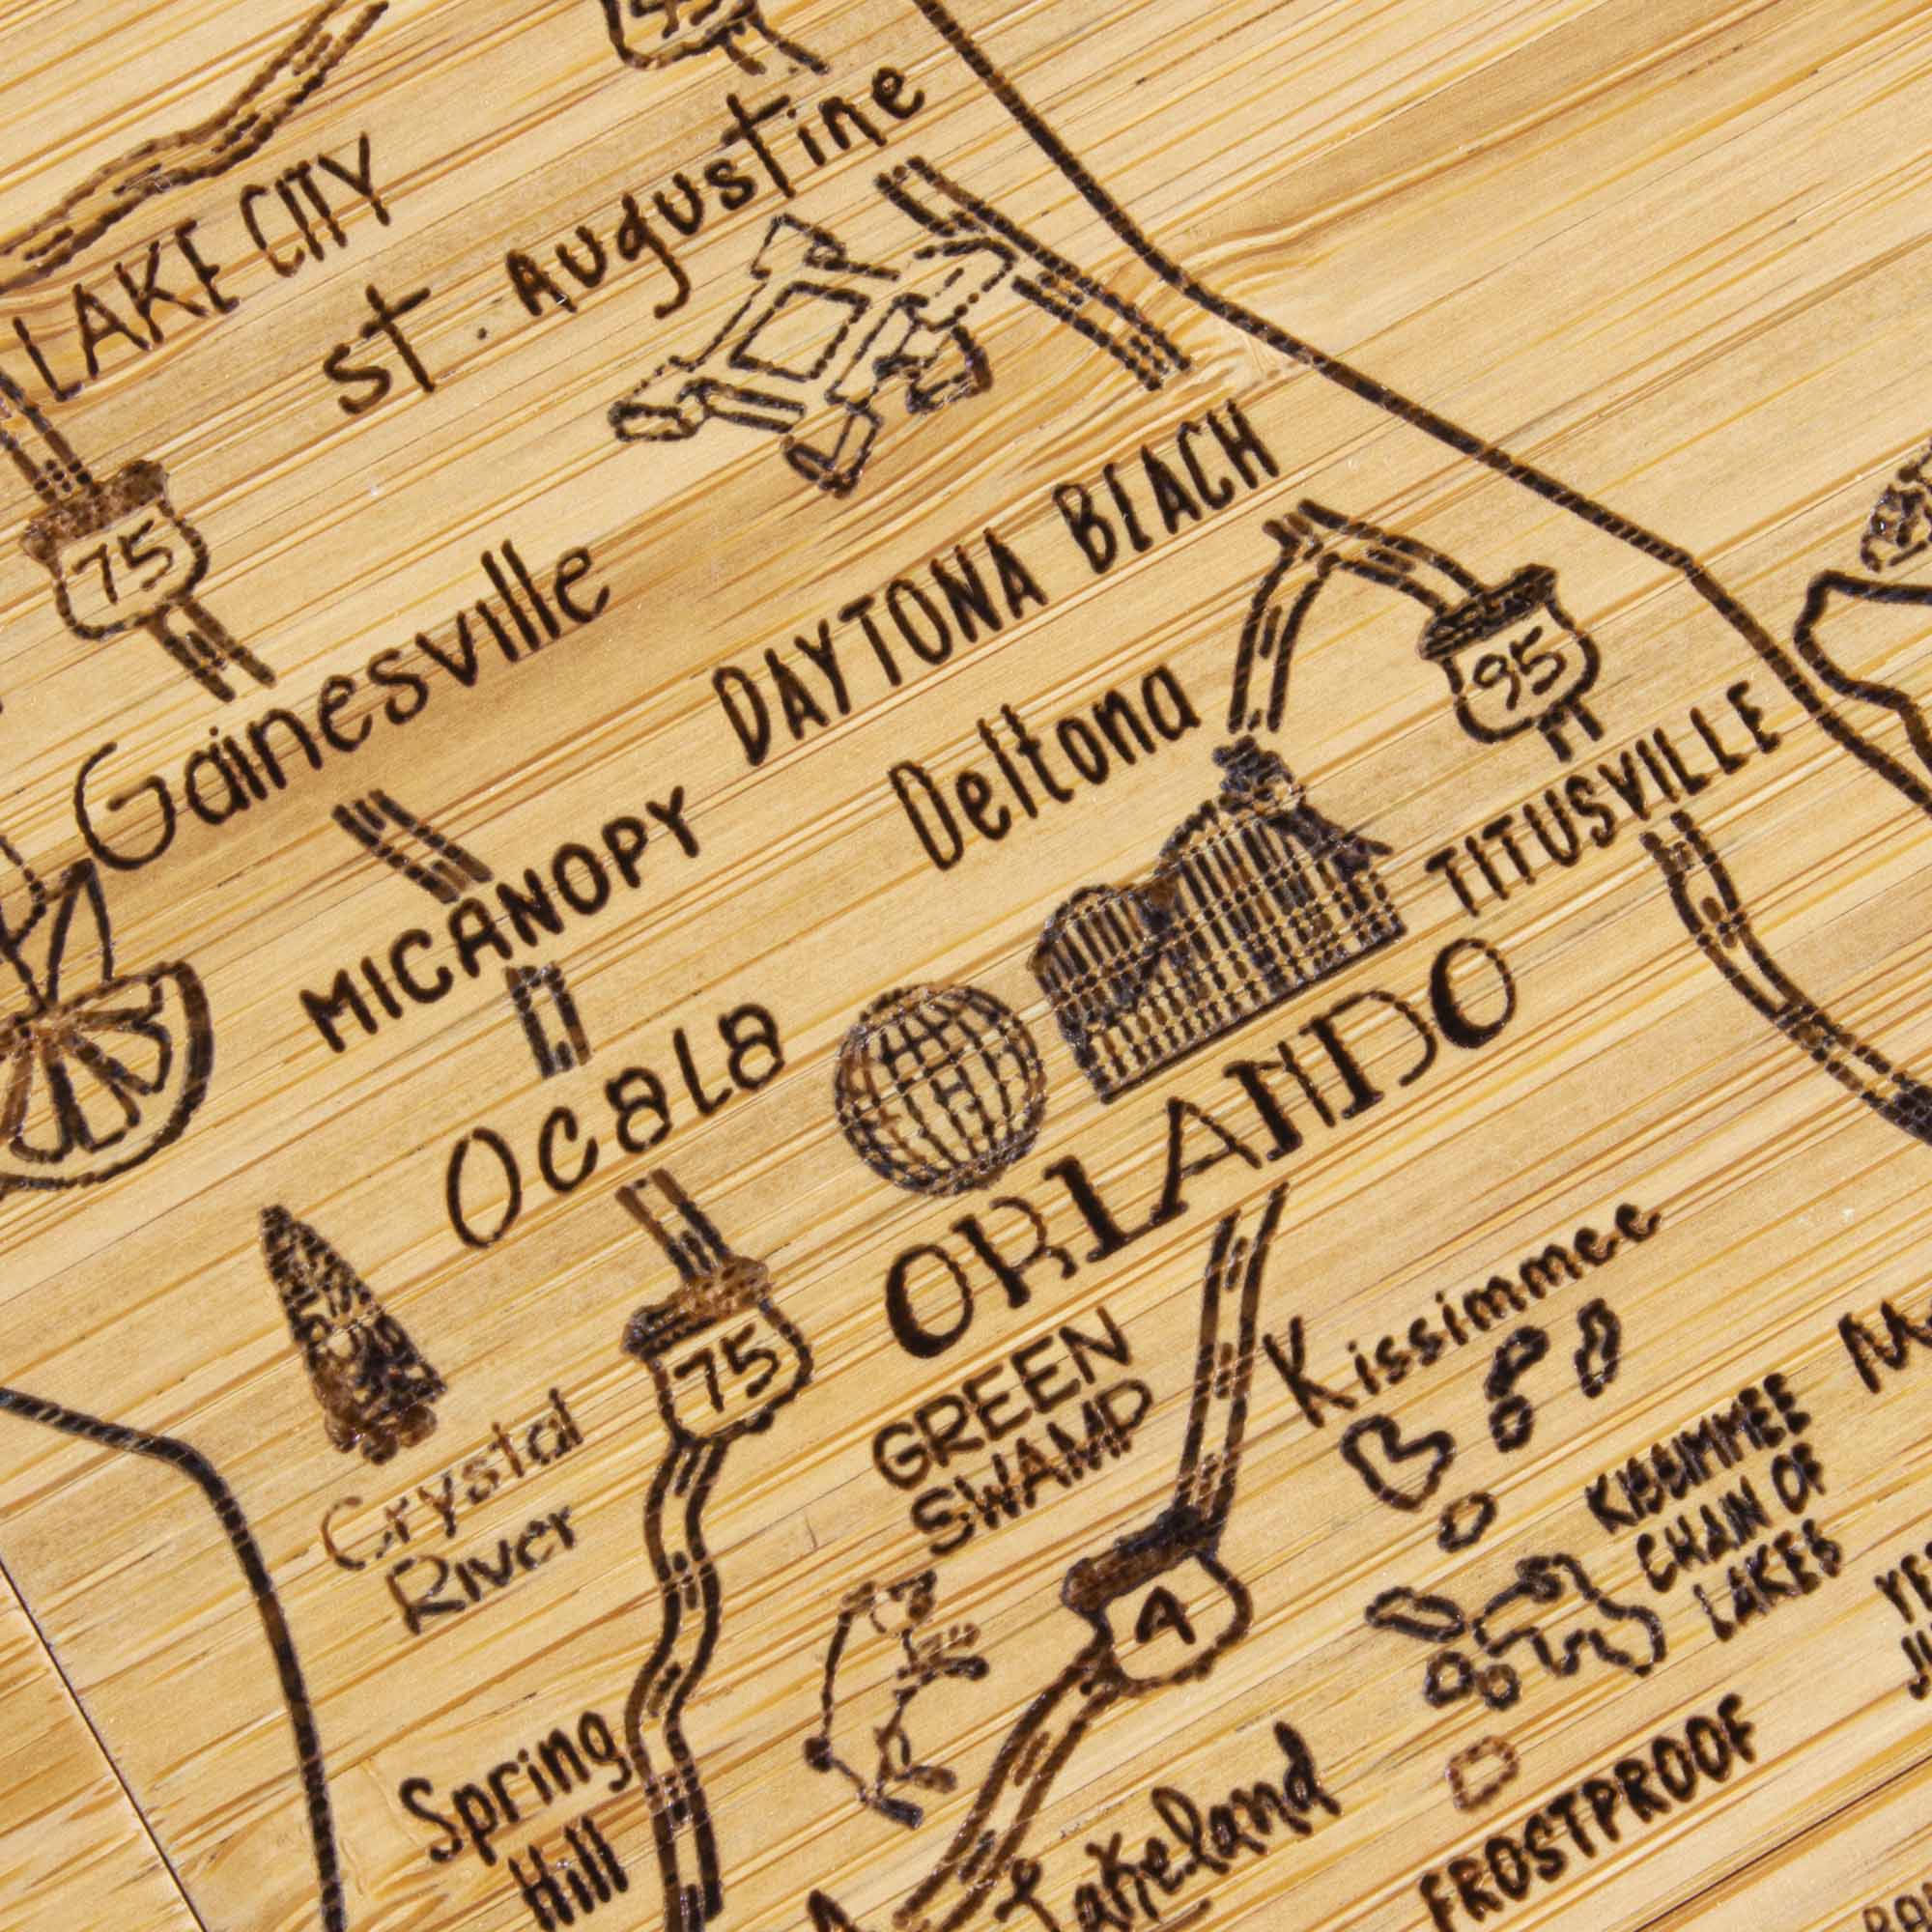 LAKE CITY
St. Augustine
75
Gainesville
DAYTONA BEACH
95
Deltona
MICANOPY
TITUSVILLE
Ocala
ORLANDO
75
Crystal
River
GREEN
SWAMP
Kissimmee
KISSIMMEE
CHAIN OF
LAKES
4
Spring
Hill
Lakeland
FROSTPROOF